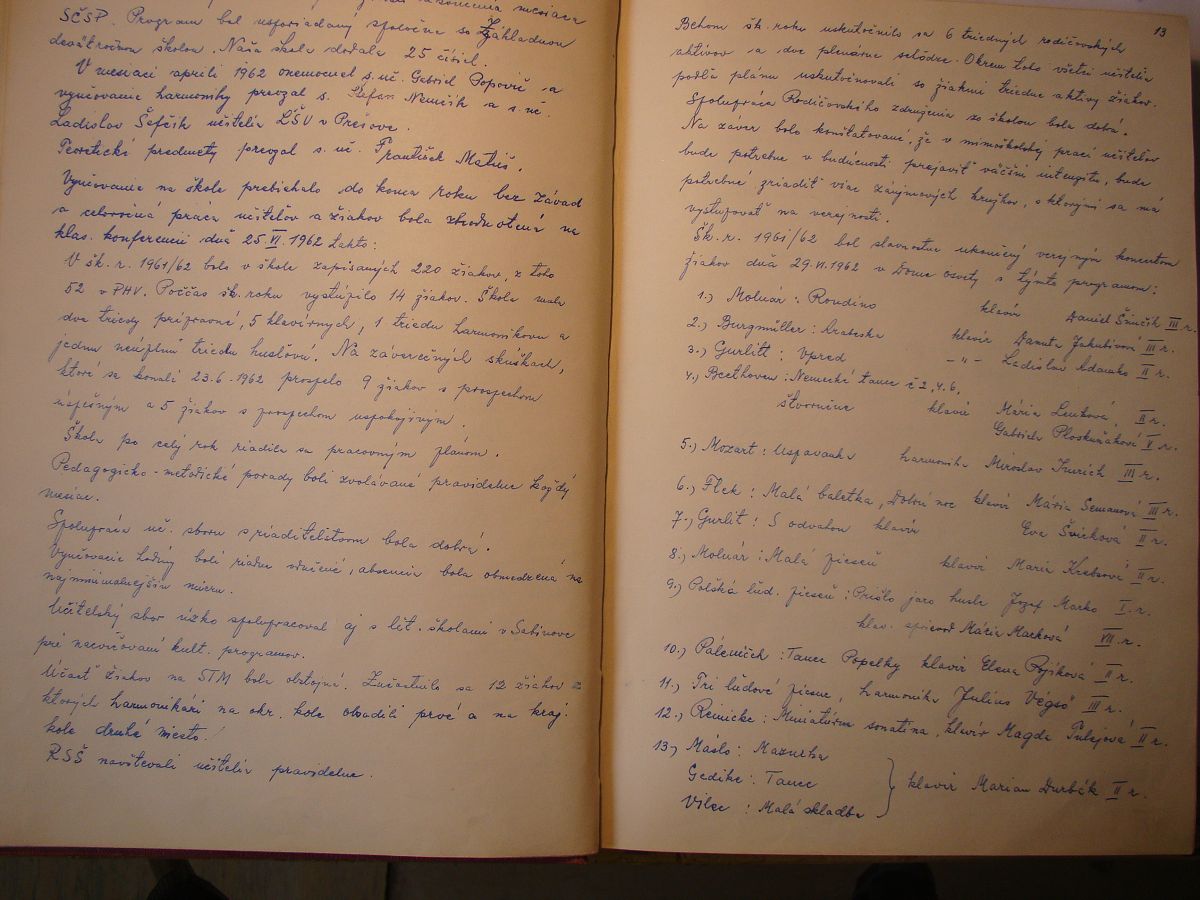 mesiaca
SČSP. Program bol usporiadaný spoločne so Základnou
devätročnou školou. Naša škola dodala 25 čísiel.
V mesiaci apríli 1962 onemocnel s. uč. Gabriel Popovič a
vyučovanie harmoniky prevzal s. Štefan Nemčík a s. uč.
Ladislav Šefčík učitelia LŠU v Prešove.
Teoretické predmety prevzal s. uč. František Matúš.
Vyučovanie na škole prebiehalo do konca roku bez závad
a celoročná práca učiteľov a žiakov bola zhodnotená na
klas. konferencii dňa 25. VI. 1962 takto:
V šk. r. 1961/62 bolo v škole zapísaných 220 žiakov, z toho
52 v PHV. Poččas šk. roku vystúpilo 14 žiakov. Škola mala
dve triedy prípravné, 5 klavírnych, 1 triedu harmonikovú a
jednu neúplnú triedu husľovú. Na záverečných skúškach,
ktoré sa konali 23.6.1962 prospelo 9 žiakov s prospechom
úspešným a 5 žiakov s prospechom uspokojivým.
Škola po celý rok riadila sa pracovným plánom.
Pedagogicko-metodické porady boli zvolávané pravidelne každý
mesiac.
Spolupráca uč. sboru s riaditeľstvom bola dobrá.
Vyučovacie hodiny boli riadne využené, absencia bola obmedzená na
najminimálnejšiu mieru.
Učiteľský sbor úzko spolupracoval aj s šk. školami v Sabinove
pri nacvičovaní kult. programov.
Účasť žiakov na STM bola obstojná. Zúčastnilo sa 12 žiakov z
ktorých harmonikári na okr. kole obsadili prvé a na kraj.
kole druhé miesto.
RSŠ navštevovali učitelia pravidelne.
13
Behom šk. roku uskutočnilo sa 6 triednych rodičovských
aktívov a dve plenárne schôdze. Okrem toho všetci učitelia
podľa plánu uskutočňovali so žiakmi triedne aktívy žiakov.
Spolupráca Rodičovského združenia so školou bola dobrá.
Na záver bolo konštatované, že v mimoškolskej práci učiteľov
bude potrebné v budúcnosti prejaviť väčšiu intenzitu, bude
potrebné zriadiť viac záujmových krúžkov, s ktorými sa má
vystupovať na verejnosti.
Šk. r. 1961/62 bol slávnostne ukončený verejným koncertom
žiakov dňa 29.VI.1962 v Dome osvety s týmto programom:
1.) Molnár: Rondino klavír Daniel Šimčík III r.
2.) Burgmüller: Arabeska klavír Danuta Jakubivová III r.
3.) Gurlitt: Vpred -"- Ladislav Adamko II r.
4.) Beethoven: Nemecké tance č 2, 4, 6,
štvorručne klavír Mária Lenková, II r.
Gabriela Ploskuňáková V r.
5.) Mozart: Uspávanka harmonika Miroslav Imrich III r.
6.) Flek: Malá baletka, Dobrú noc klavír Mária Semanová III r.
7.) Gurlit: S odvahou klavír Eva Švicková II r.
8.) Molnár: Malá pieseň klavír Mária Krebsová II r.
9.) Poľská ľud. pieseň: Prišlo jaro husle Jozef Marko I. r.
klav. sprievod Mária Marková VII r.
10.) Páleníček: Tanec Popelky klavír Elena Pyšková II r.
11.) Tri ľudové piesne, harmonika Július Végső III r.
12.) Reinicke: Miniatúrna sonatína, klavír Magda Tulejová II r.
13.) Máslo: Mazurka
Gedike: Tanec klavír Marian Durbák II r.
Vilec: Malá skladba